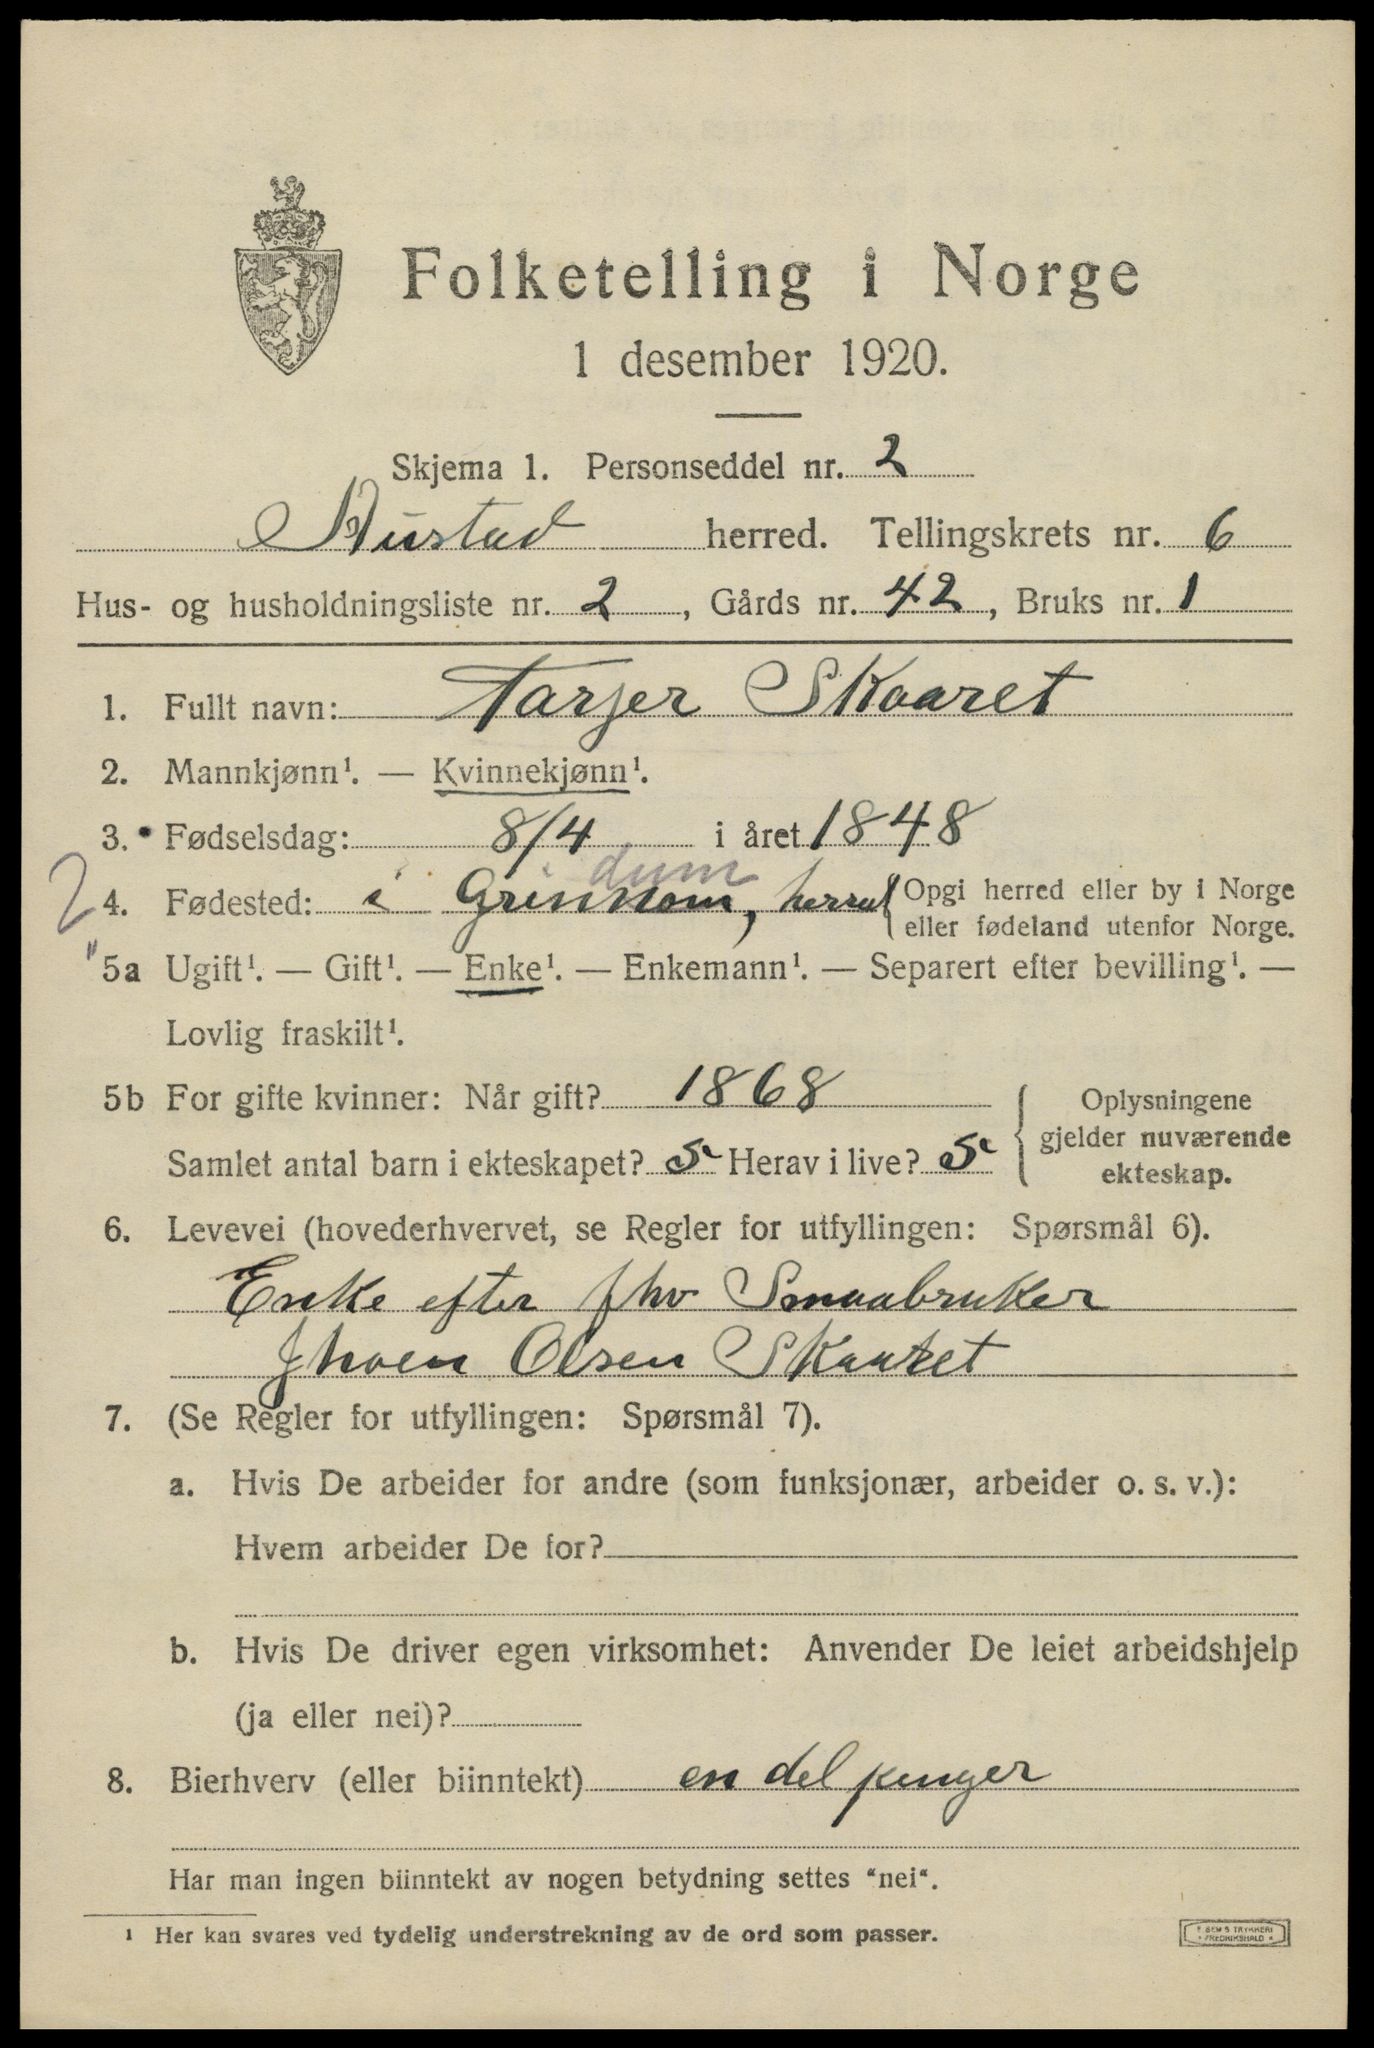 Folketelling i Norge
1 desember 1920.
Skjema 1. Personseddel nr. 2
Hustad herred. Tellingskrets nr. 6
Hus- og husholdningsliste nr. 2, Gårds nr. 42, Bruks nr. 1
1. Fullt navn: Tarjer Skaaret
2. Mannkjønn¹. — Kvinnekjønn¹.
3. Fødselsdag: 8/4 i året 1848
dum
2 4. Fødested: i Grinnom, herred { Opgi herred eller by i Norge
eller fødeland utenfor Norge.
5a Ugift¹. — Gift¹. — Enke¹. — Enkemann¹. — Separert efter bevilling¹. —
Lovlig fraskilt¹.
5b For gifte kvinner: Når gift? 1868
Samlet antal barn i ekteskapet? 5 Herav i live? 5
{ Oplysningene
gjelder nuværende
ekteskap.
6. Levevei (hovederhvervet, se Regler for utfyllingen: Spørsmål 6).
Enke efter fhv Smaabruker
Jhoen Olsen Skaaret
7. (Se Regler for utfyllingen: Spørsmål 7).
a. Hvis De arbeider for andre (som funksjonær, arbeider o. s. v.):
Hvem arbeider De for?
b. Hvis De driver egen virksomhet: Anvender De leiet arbeidshjelp
(ja eller nei)?
8. Bierhverv (eller biinntekt) en del penger
Har man ingen biinntekt av nogen betydning settes "nei".
¹ Her kan svares ved tydelig understrekning av de ord som passer.
SEM'S TRYKKERI
FREDRIKSHALD